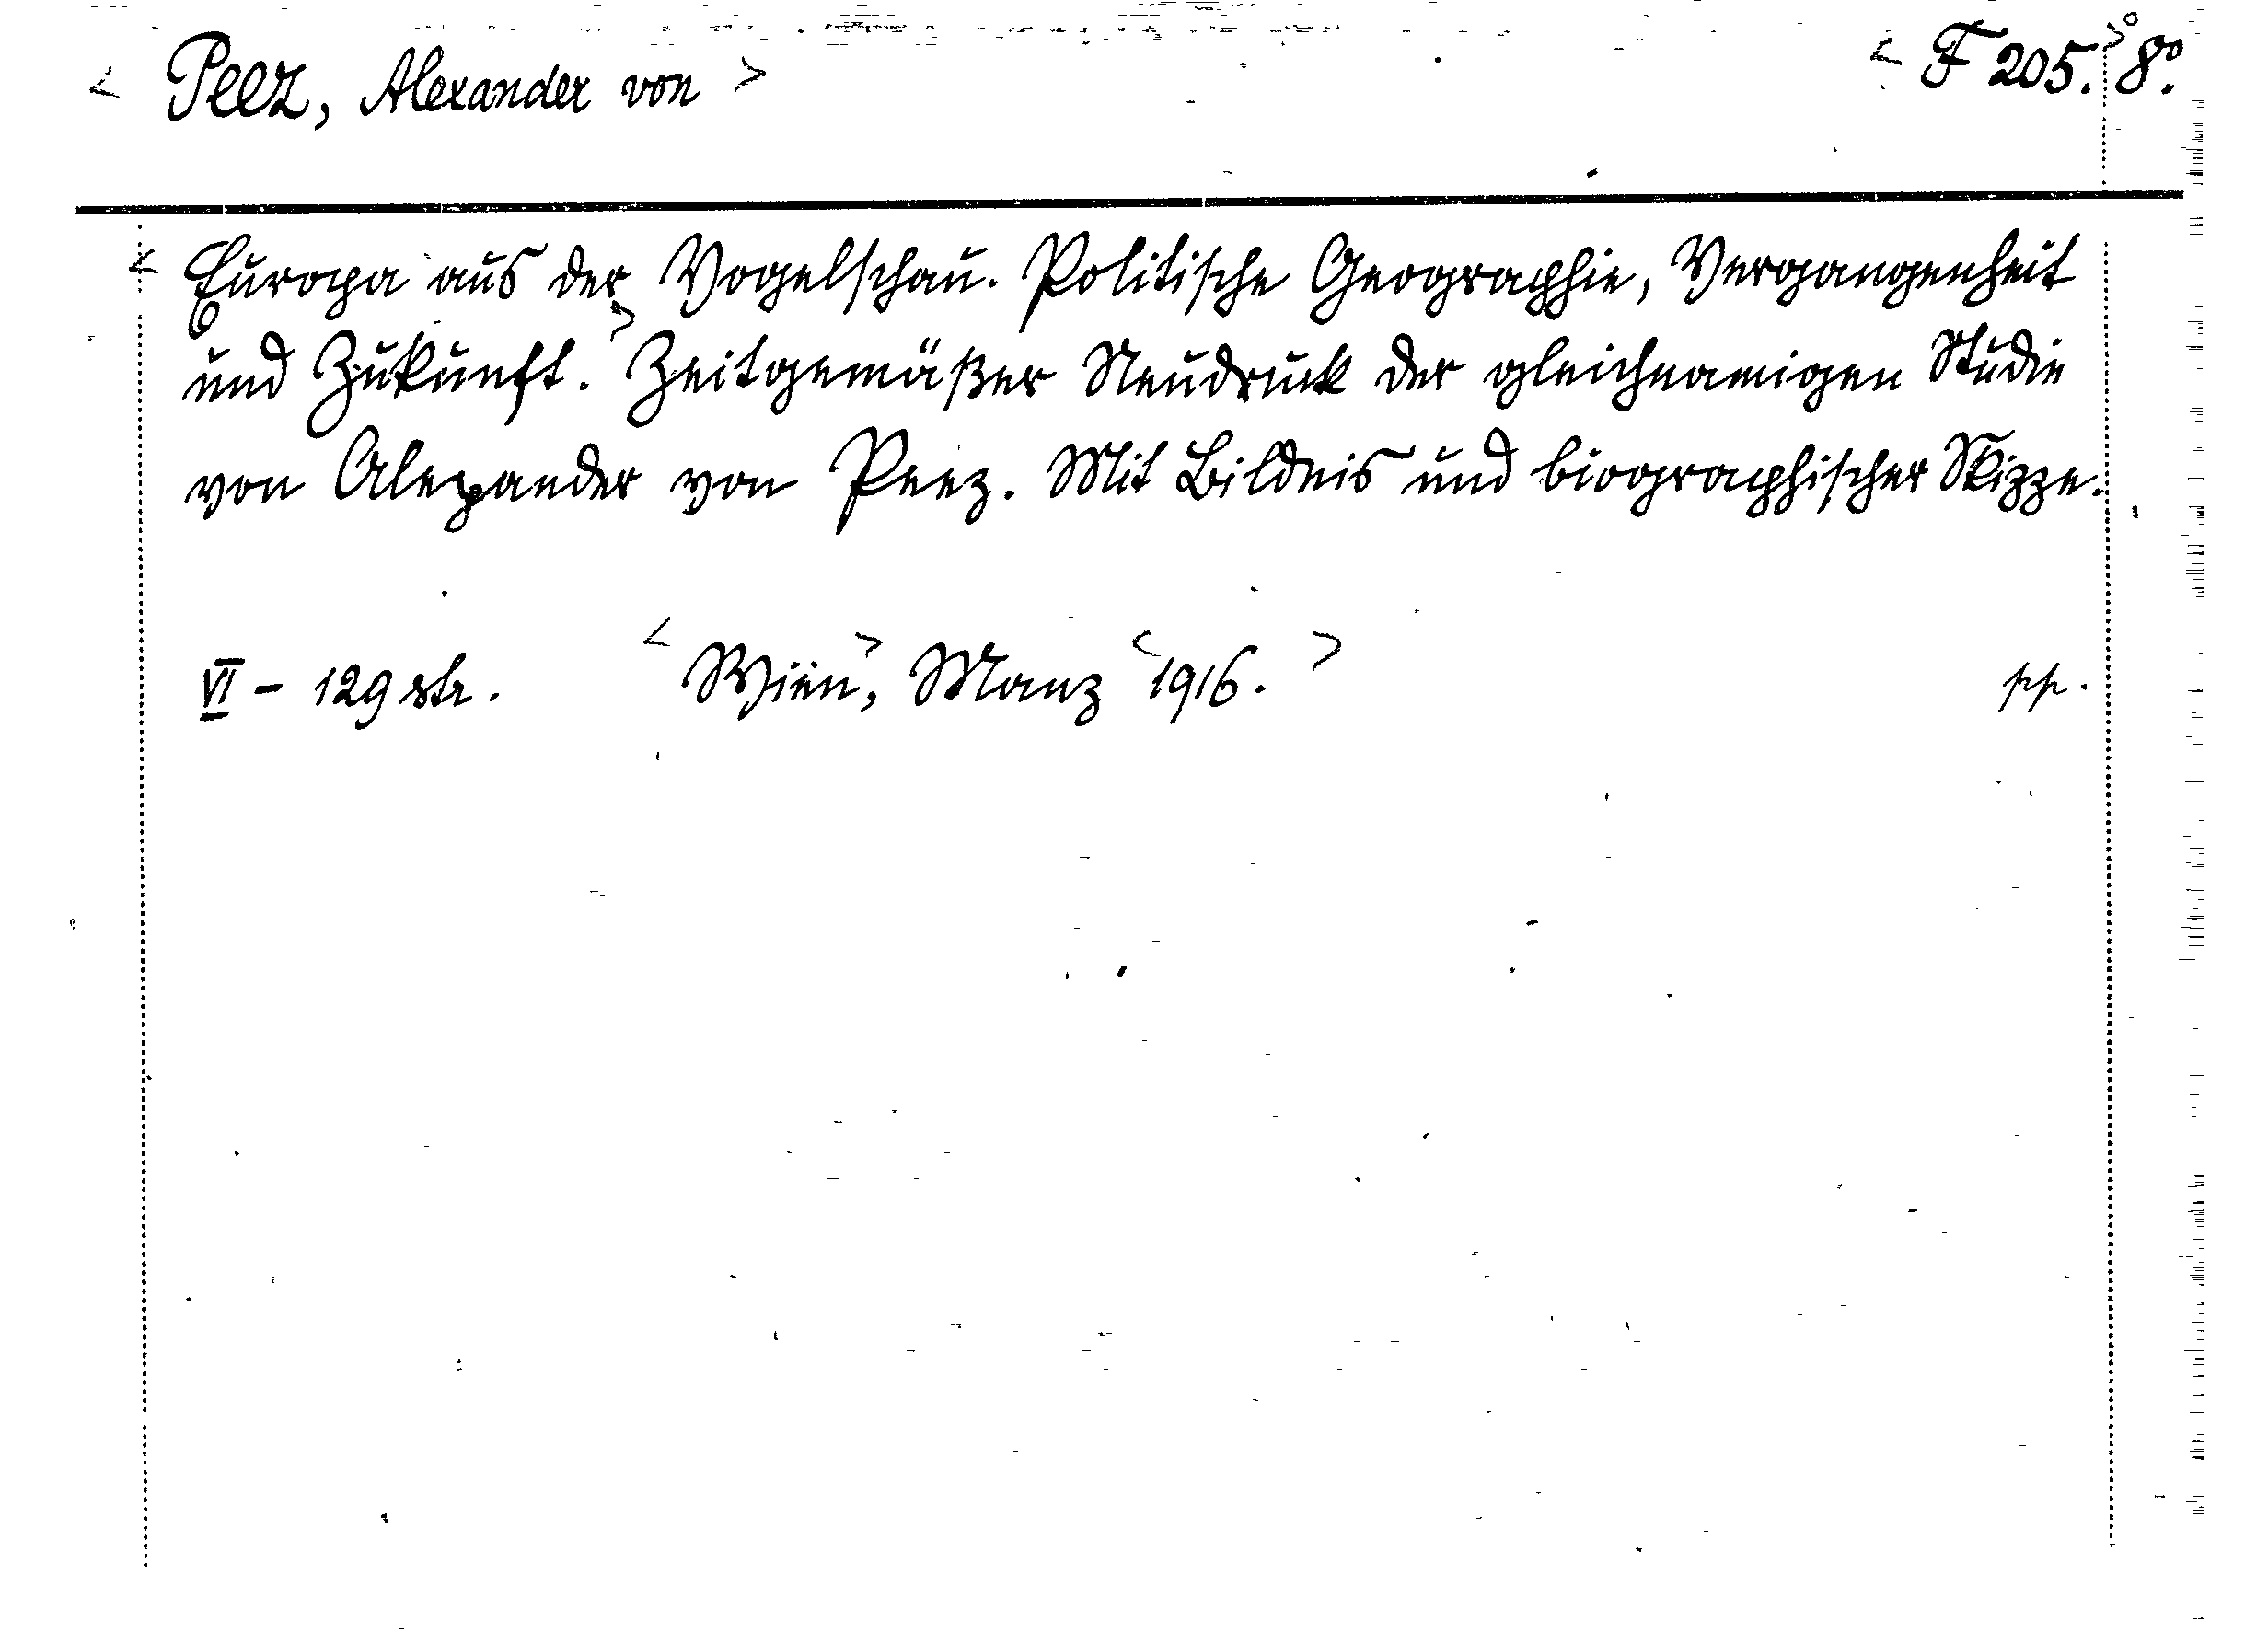 < Peez, Alexander von > < F 205.> 8°.
< Europa aus der Vogelschau. Politische Geographie, Vergangenheit
und Zukunft. > Zeitgemäßer Neudruck der gleichnamigen Studie
von Alexander von Peez. Mit Bildnis und biographischer Skizze.
VI - 129 str. < Wien >, Manz < 1916. > pp.